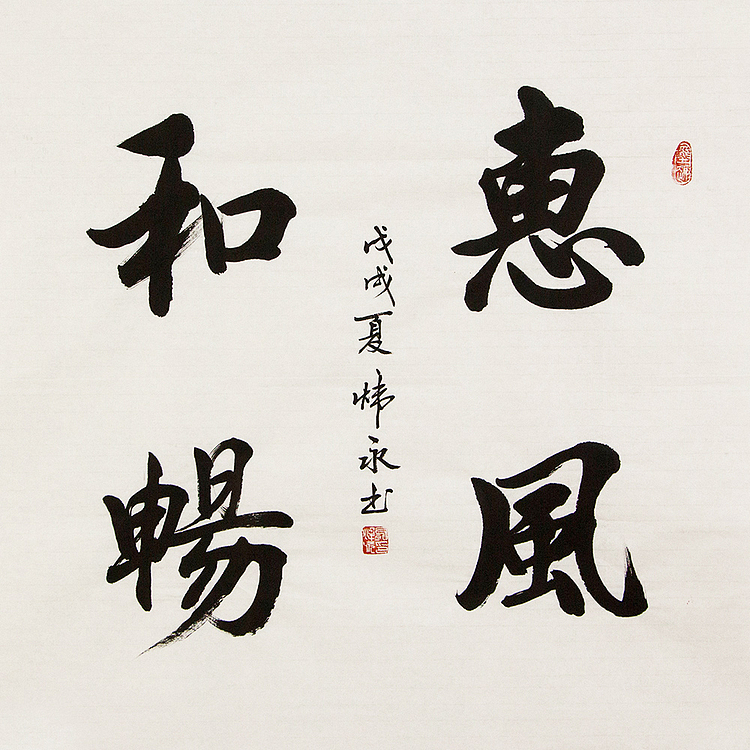 惠風
和暢
戊戌夏炜永书